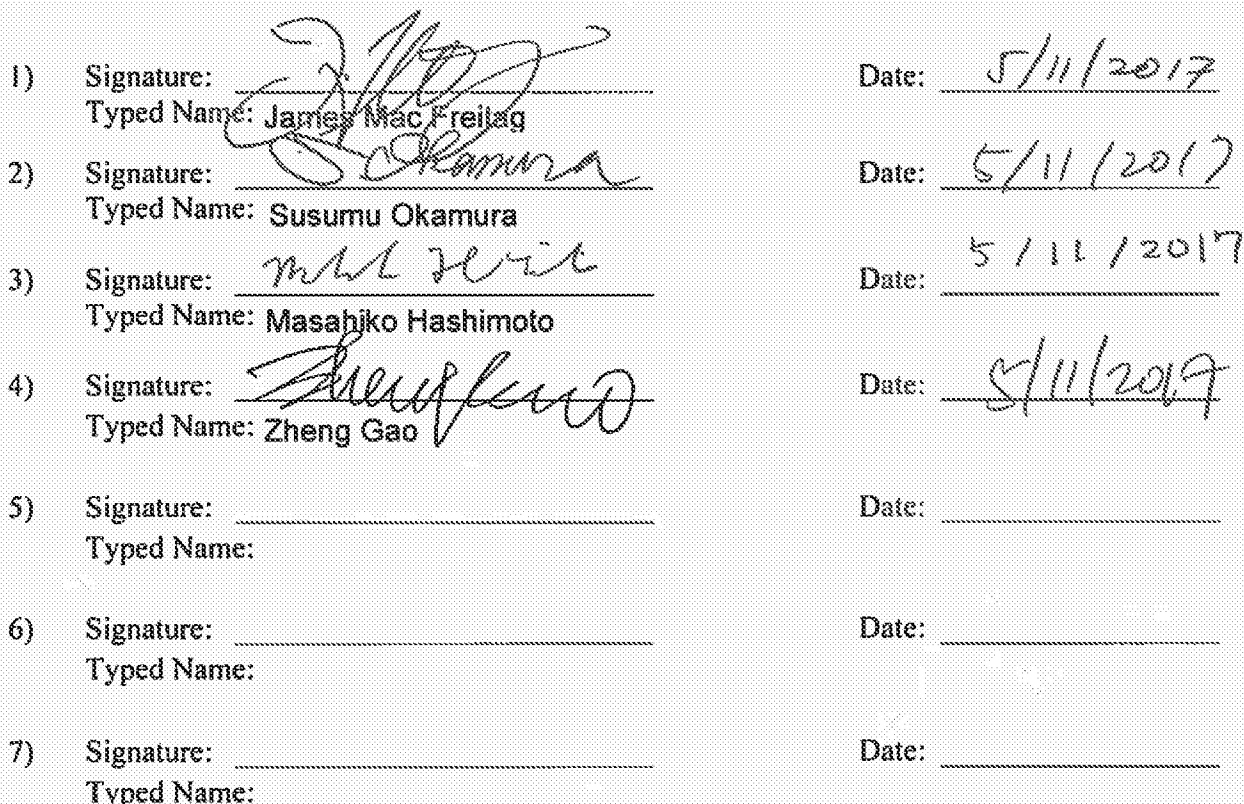 1) Signature: Date: 5/11/2017
Typed Name: James Mac Freitag
2) Signature: S. Okamura Date: 5/11/2017
Typed Name: Susumu Okamura
3) Signature: Date: 5/11/2017
Typed Name: Masahiko Hashimoto
4) Signature: Zheng Gao Date: 5/11/2017
Typed Name: Zheng Gao
5) Signature: Date:
Typed Name:
6) Signature: Date:
Typed Name:
7) Signature: Date:
Typed Name: